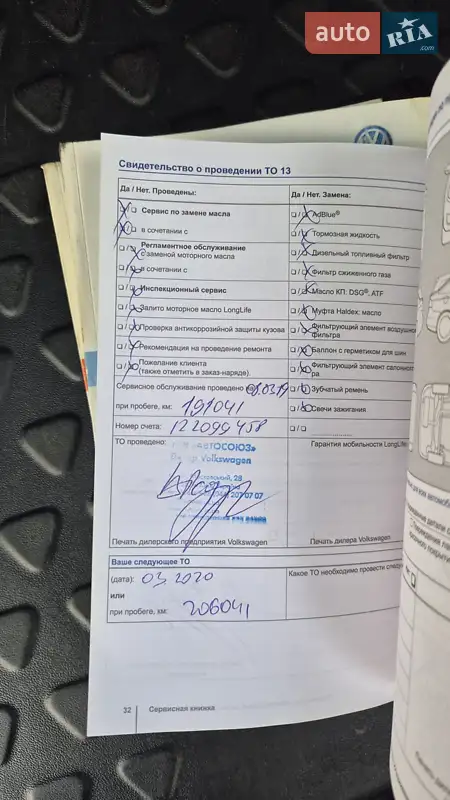 auto RIA
.com
Свидетельство о проведении ТО 13
Да / Нет. Проведены:
Да / Нет. Замена:
Сервис по замене масла
AdBlue®
в сочетании с
Тормозная жидкость
Регламентное обслуживание
с заменой моторного масла
Дизельный топливный фильтр
в сочетании с
Фильтр сжиженного газа
Инспекционный сервис
Масло КП: DSG®, ATF
Залито моторное масло LongLife
Муфта Haldex: масло
Проверка антикоррозийной защиты кузова
Фильтрующий элемент воздушно
фильтра
Рекомендация на проведение ремонта
Баллон с герметиком для шин
Пожелание клиента
(также отметить в заказ-наряде).
Фильтрующий элемент салонног
ра
Сервисное обслуживание проведено 03.19
Зубчатый ремень
при пробеге, км: 191041
Свечи зажигания
Номер счета: 122099458
ТО проведено:
Гарантия мобильности LongLife
«АВТОСОЮЗ»
Volkswagen
207 07 07
Печать дилерского предприятия Volkswagen
Печать дилера Volkswagen
Ваше следующее ТО
(дата): 03 2020
Какое ТО необходимо провести следую
или
при пробеге, км: 206041
32 Сервисная книжка